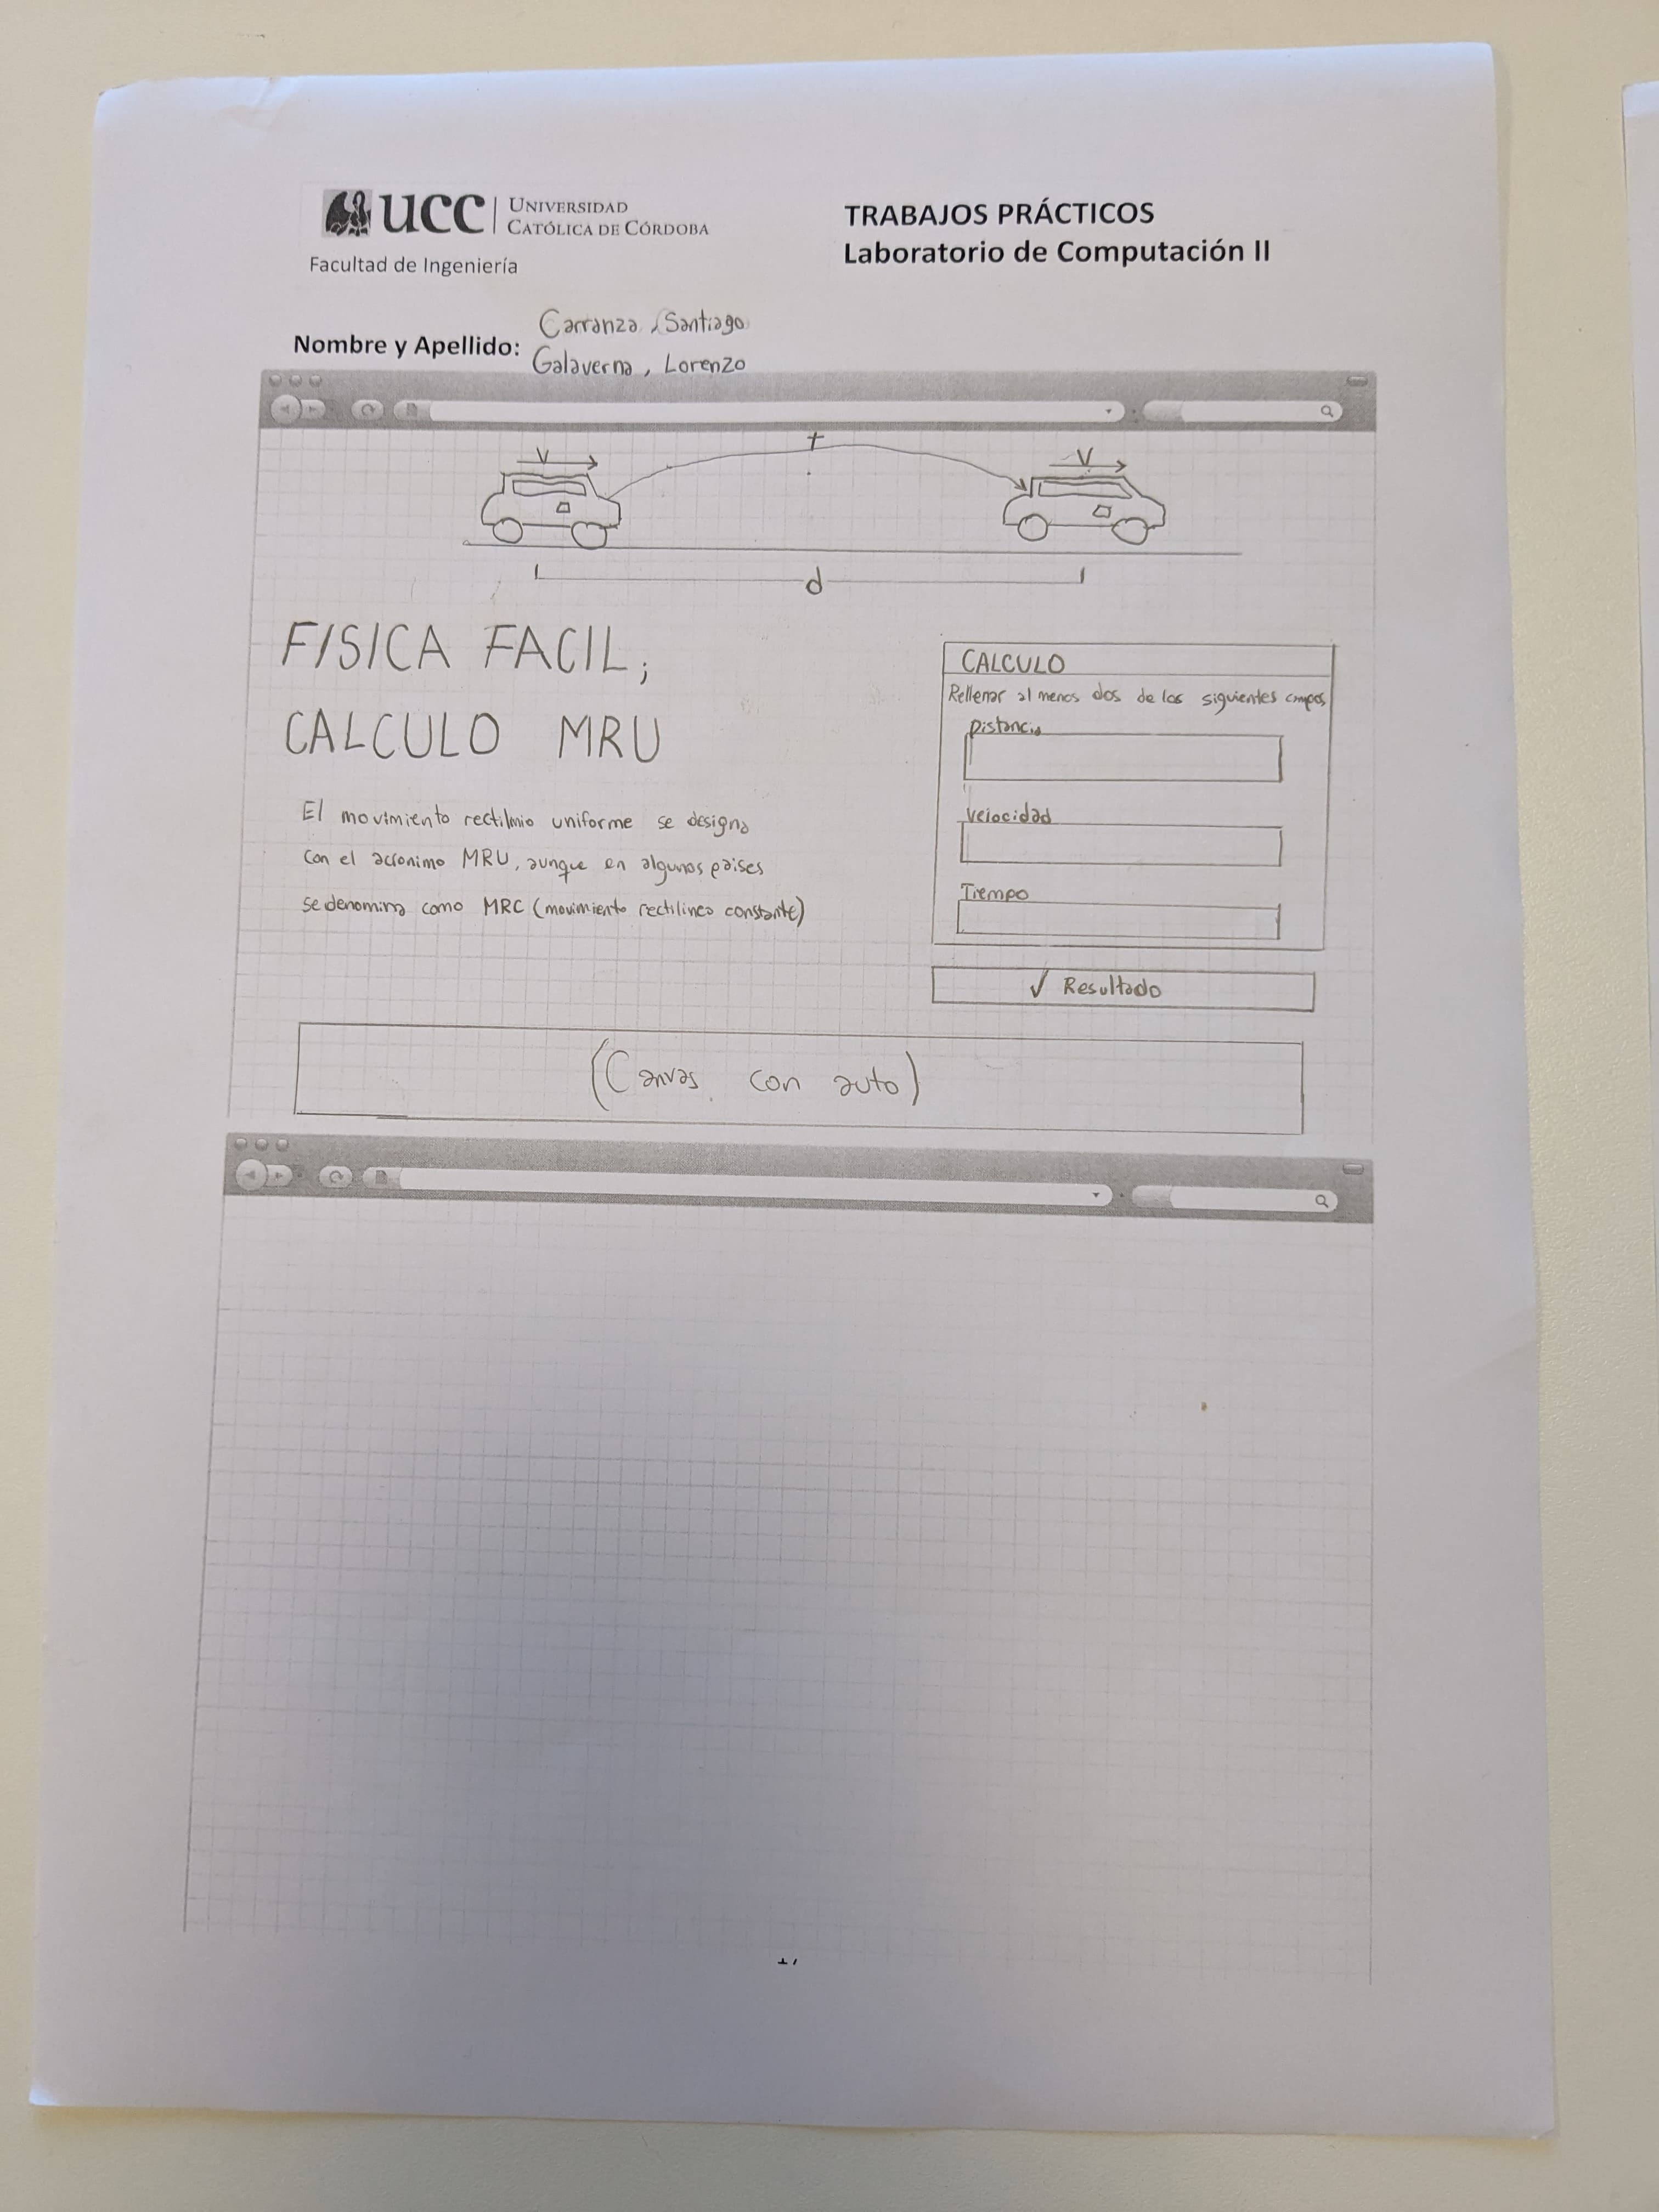 UCC UNIVERSIDAD
CATÓLICA DE CÓRDOBA
Facultad de Ingeniería
TRABAJOS PRÁCTICOS
Laboratorio de Computación II
Nombre y Apellido:
Carranza, Santiago
Galaverna, Lorenzo
t
V
V
d
FISICA FACIL;
CALCULO MRU
El movimiento rectilinio uniforme se designa
con el acronimo MRU, aunque en algunos paises
se denomina como MRC (movimiento rectilineo constante)
CALCULO
Rellenar al menos dos de los siguientes campos
Distancia
Velocidad
Tiempo
✓ Resultado
(Canvas con auto)